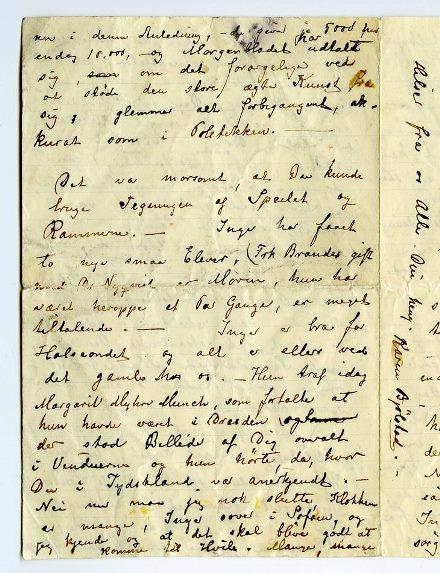 nu i denne Anledning, – de gav jo 5000 frcs
endog 10,000, – og Morgenbladet udtalte
sig, om det forargelige ved
at støde den store ægte Kunst fra
sig, glemmer alt forbigangent, ak-
kurat som i Politikken. —
Det va morsomt, at Du kunde
bruge Tegningen af Speilet og
Rammerne. — Inge har faaet
to nye smaa Elever, (Frk Brandes gift
med Dr, er Moren, hun har
været heroppe et Par Gange, er meget
tiltalende. — Inger er bra for
Halsondet og alt er ellers ved
det gamle hos os. — Hun traf idag
Margarit Munch, som fortalte at
hun havde vært i Dresden
der stod Billede af Dig overalt
i Vinduerne og hun hørte da, hvor
Du i Tydskland va anerkjendt. —
Nei nu maa jeg nok slutte Klokken
er mange, Inger sover i Sofaen, og
jeg kjender at det skal blive godt at
komme til Hvile. Mange, mange
Hilsner fra os Alle. Din heng. Karen Bjølstad.